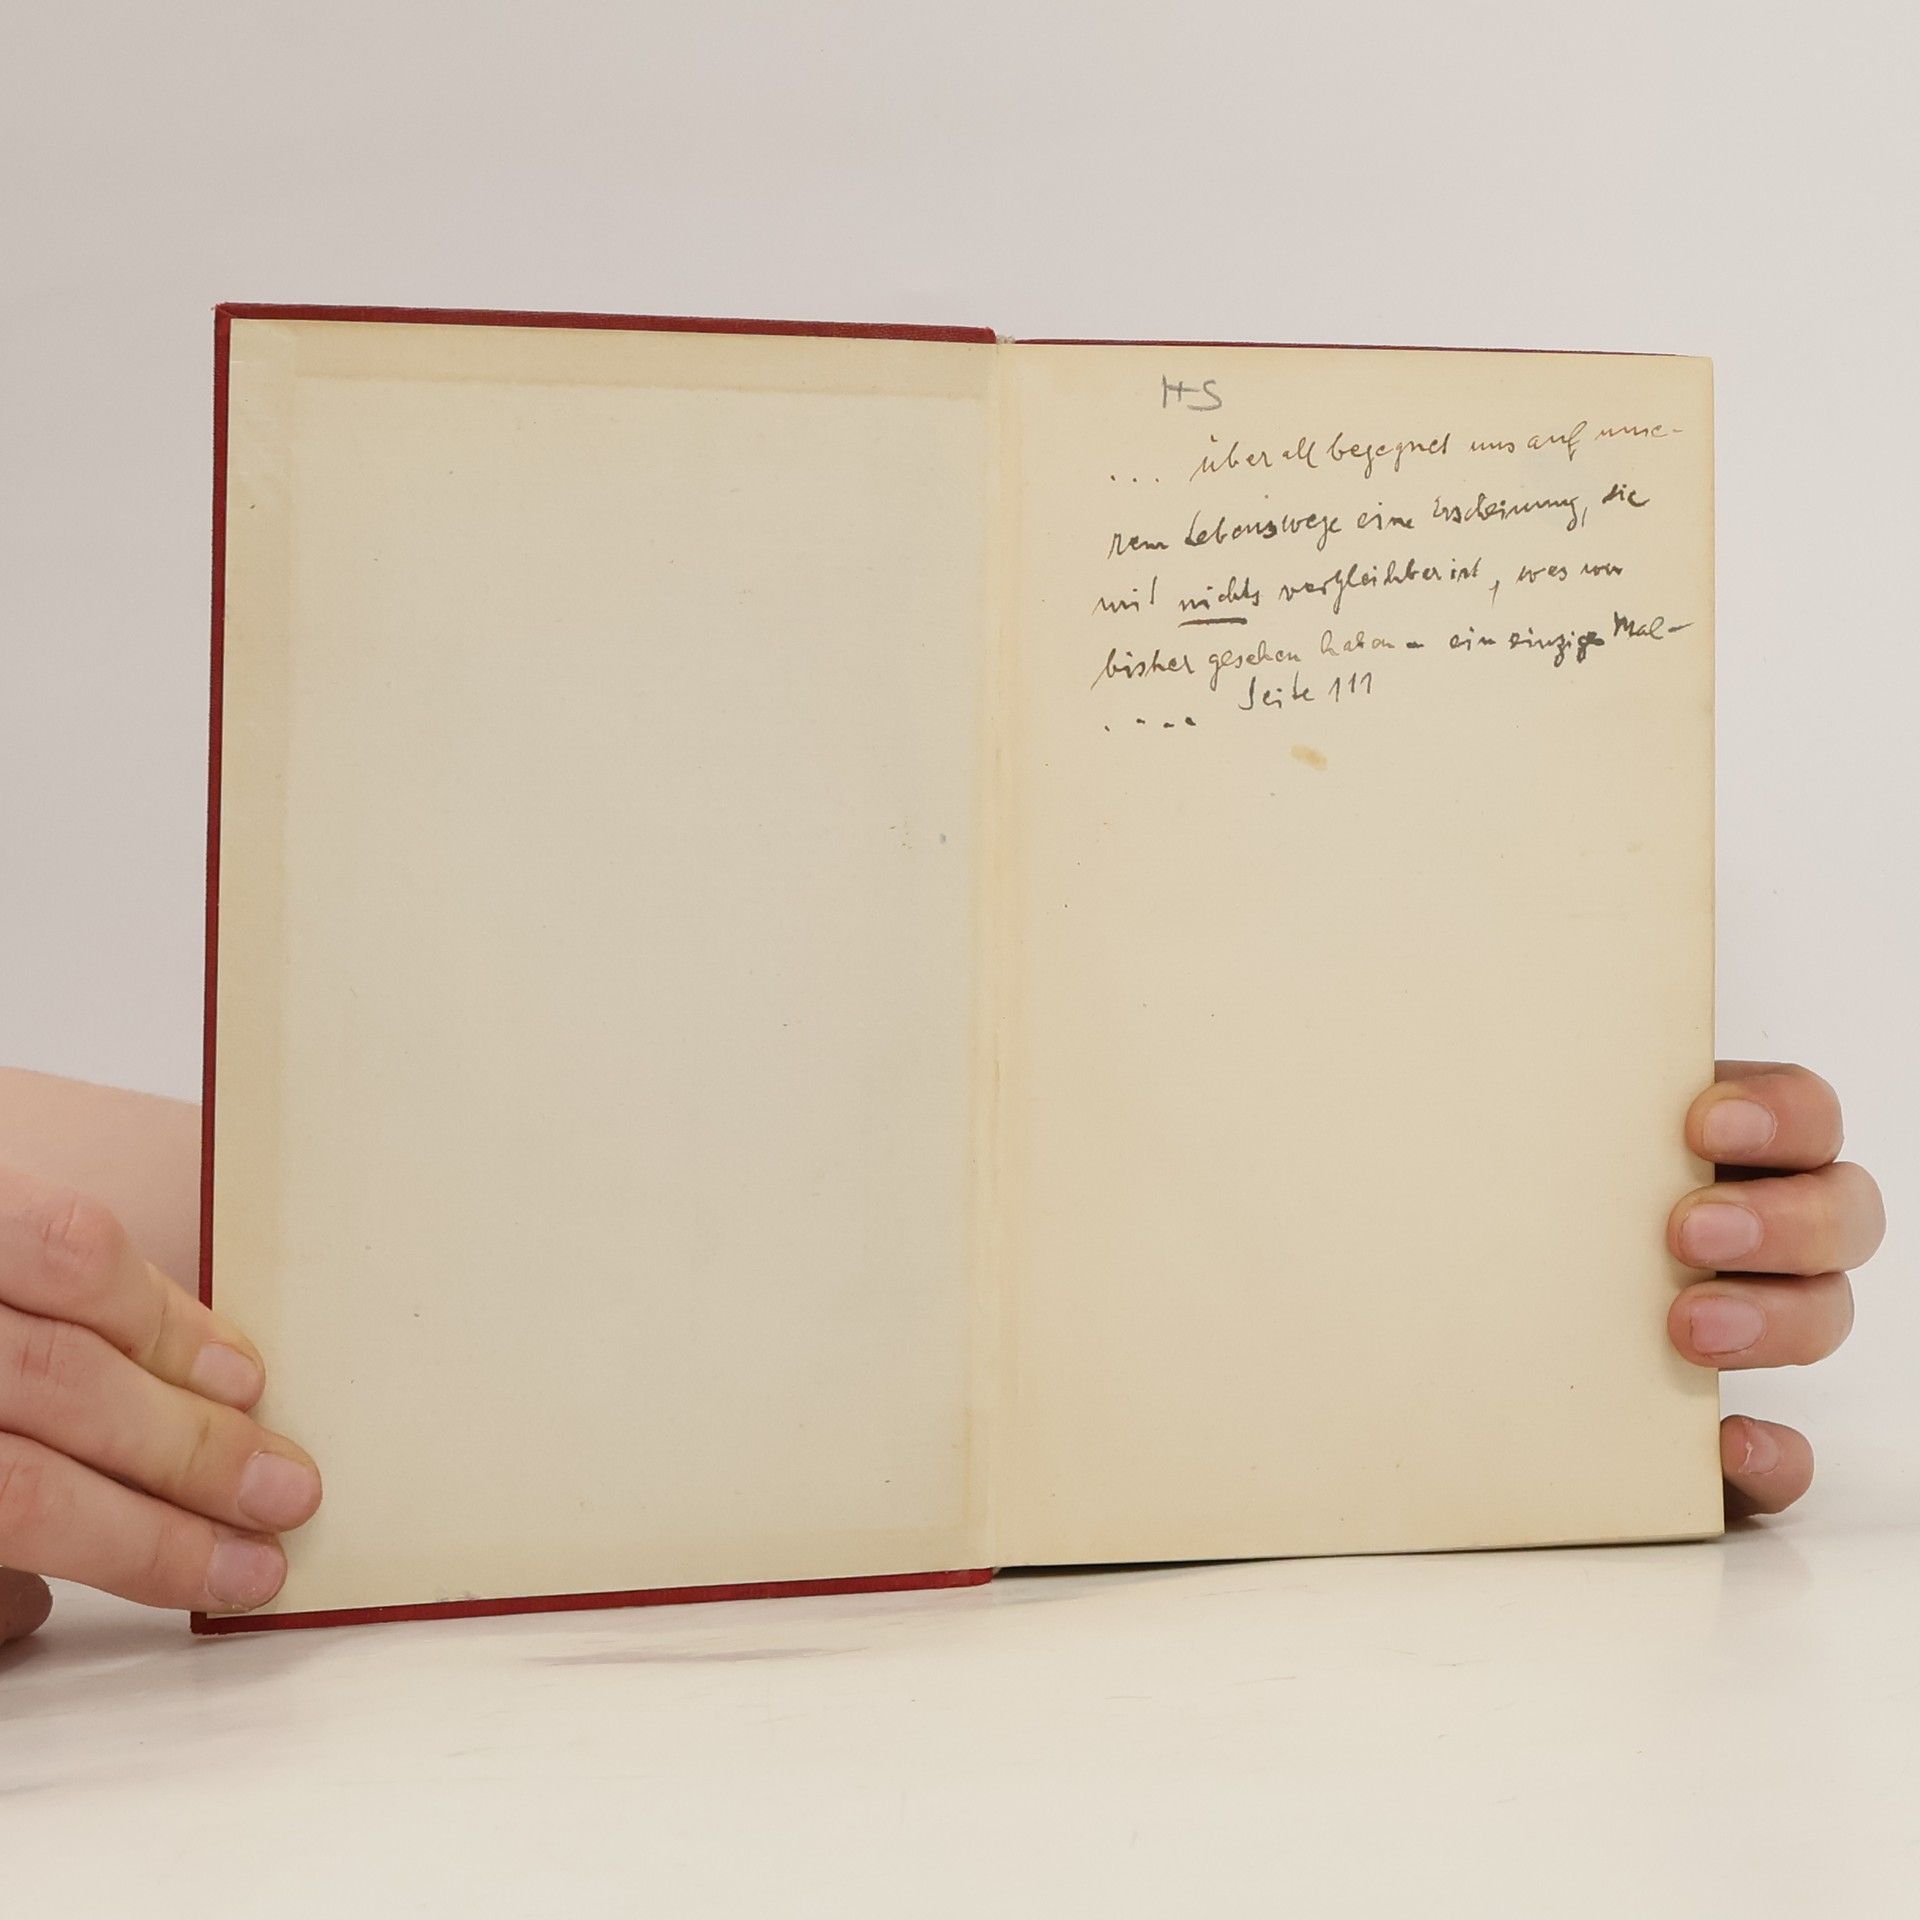 HS
... überall begegnet uns auf unse-
rem Lebenswege eine Erscheinung, die
mit nichts vergleichbar ist, was wir
bisher gesehen haben - ein einzige Mal-
.... Seite 111